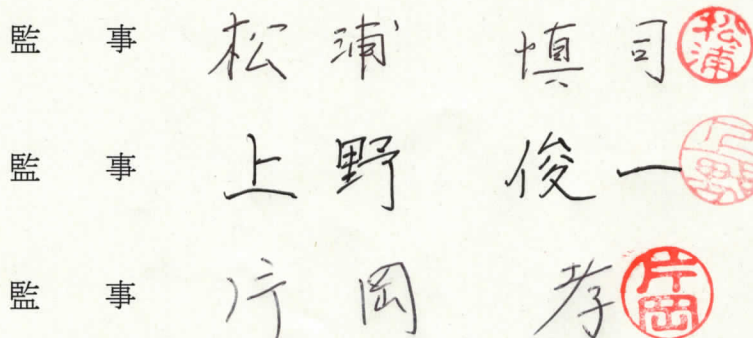 監 事 松浦 慎司 松浦
監 事 上野 俊一 上野
監 事 片岡 孝 片岡